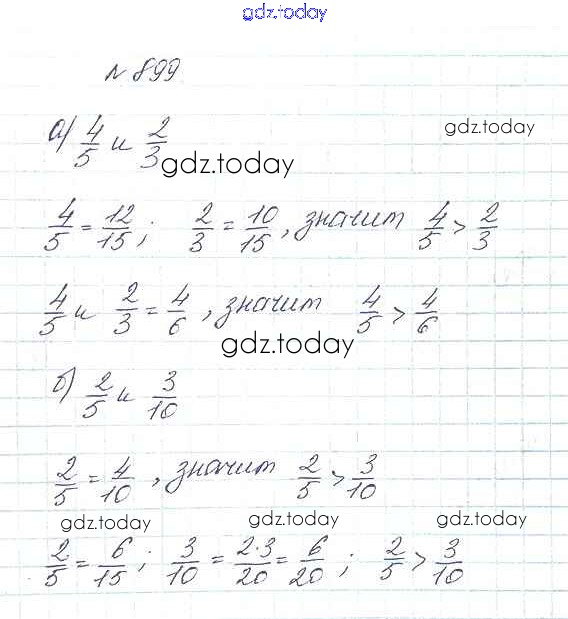 gdz.today
№ 899
а) 4/5 и 2/3
gdz.today
gdz.today
4/5 = 12/15; 2/3 = 10/15, значит 4/5 > 2/3
4/5 и 2/3 = 4/6, значит 4/5 > 4/6
gdz.today
б) 2/5 и 3/10
2/5 = 4/10, значит 2/5 > 3/10
gdz.today gdz.today gdz.today
2/5 = 6/15; 3/10 = 2·3/20 = 6/20; 2/5 > 3/10